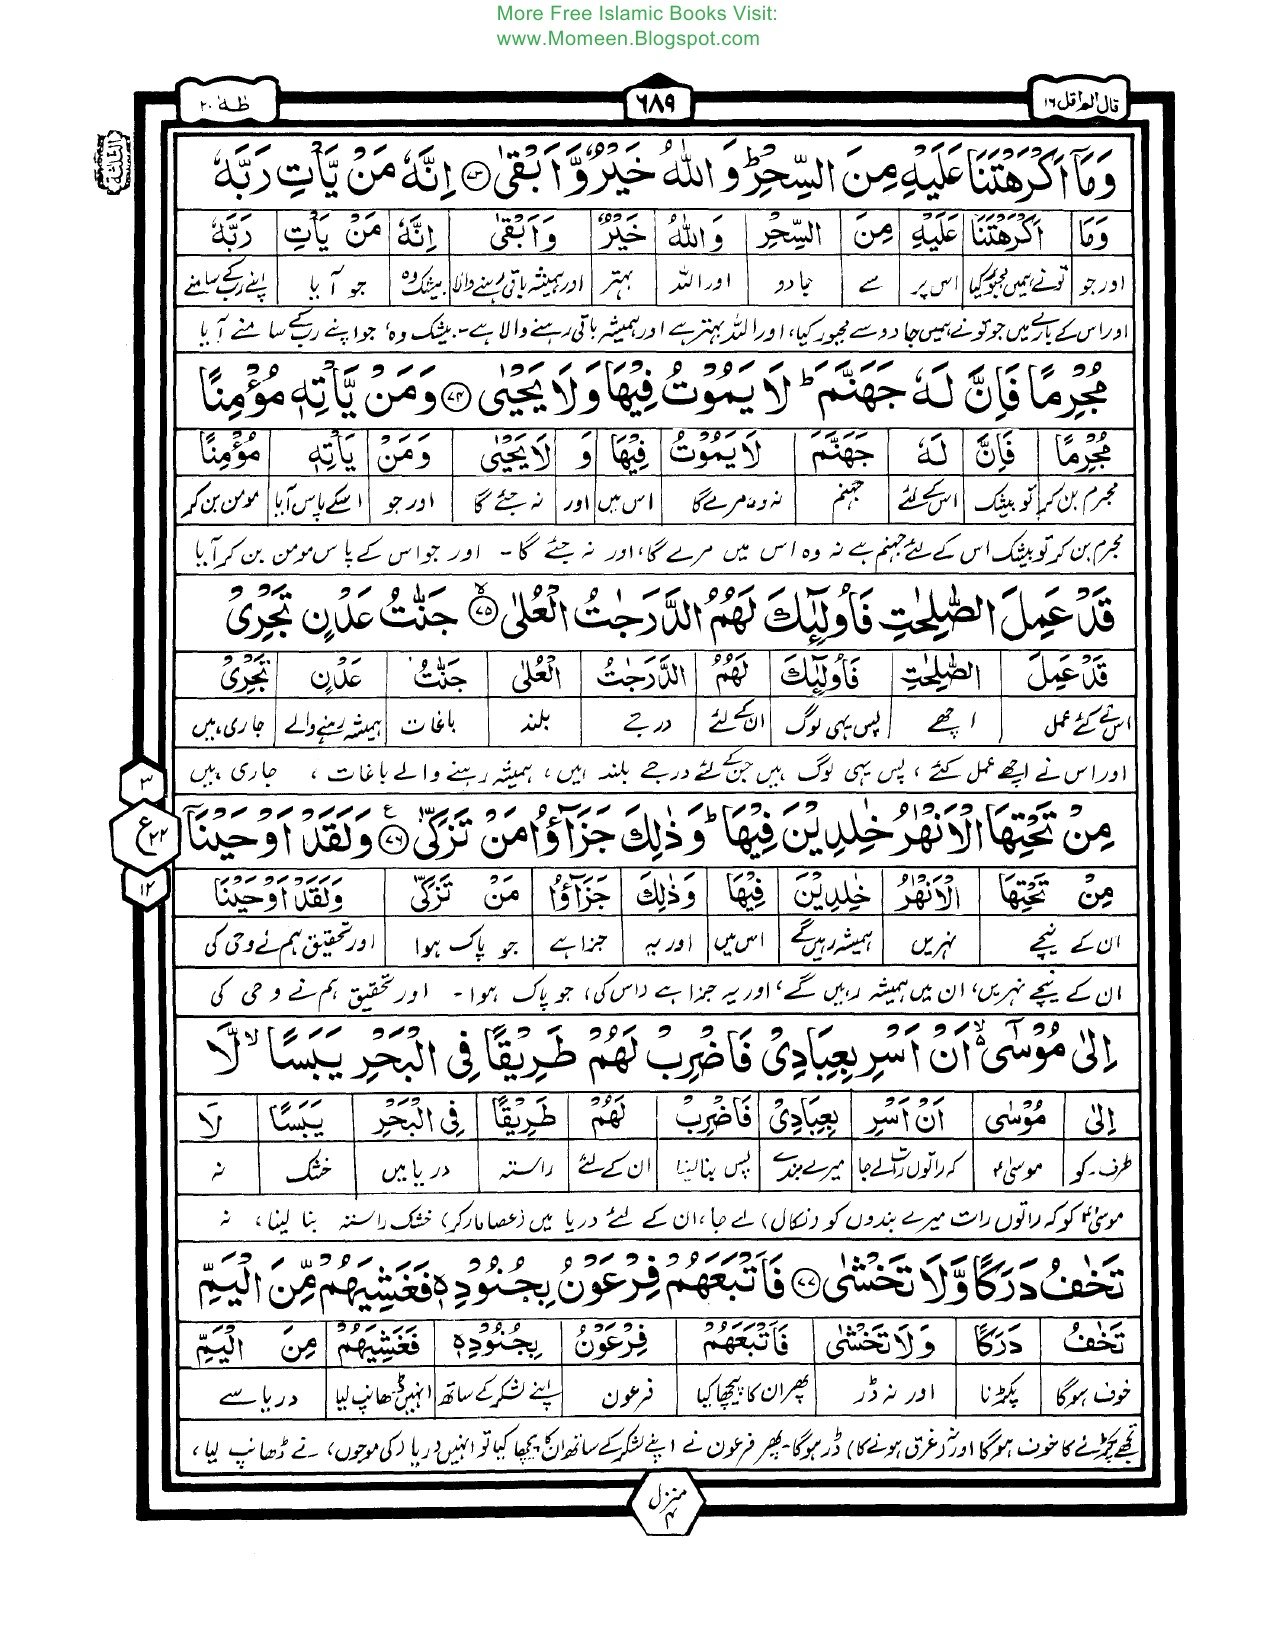 More Free Islamic Books Visit:
www.Momeen.Blogspot.com
قال الم اقل ١٦
٦٨٩
طٰهٰ ٢٠
الثلثة
وَمَاۤ اَكْرَهْتَنَا عَلَيْهِ مِنَ السِّحْرِؕ وَ اللّٰهُ خَيْرٌ وَّ اَبْقٰى ﴿۷۳﴾ اِنَّهٗ مَنْ يَّاْتِ رَبَّهٗ
وَمَا اَكْرَهْتَنَا عَلَيْهِ مِنَ السِّحْرِ وَاللّٰهُ خَيْرٌ وَاَبْقٰى اِنَّهٗ مَنْ يَّاْتِ رَبَّهٗ
اور جو تونے ہمیں مجبور کیا اس پر سے جادو اور اللہ بہتر اور ہمیشہ باقی رہنے والا بیشک وہ جو آیا اپنے رب کے سامنے
اور اس کے بارے میں جو تو نے ہمیں جادو سے مجبور کیا، اور اللہ بہتر ہے اور ہمیشہ باقی رہنے والا ہے۔ بیشک وہ، جو اپنے رب کے سامنے آیا
مُجْرِمًا فَاِنَّ لَهٗ جَهَنَّمَ ؕ لَا يَمُوْتُ فِيْهَا وَلَا يَحْيٰى ﴿۷۴﴾ وَمَنْ يَّاْتِهٖ مُؤْمِنًا
مُجْرِمًا فَاِنَّ لَهٗ جَهَنَّمَ لَا يَمُوْتُ فِيْهَا وَ لَا يَحْيٰى وَمَنْ يَّاْتِهٖ مُؤْمِنًا
مجرم بن کر تو بیشک اس کے لئے جہنم نہ وہ مرے گا اس میں اور نہ جئے گا اور جو اسکے پاس آیا مومن بن کر
مجرم بن کر تو بیشک اس کے لئے جہنم ہے نہ وہ اس میں مرے گا، اور نہ جئے گا۔ اور جو اس کے پاس مومن بن کر آیا
قَدْ عَمِلَ الصّٰلِحٰتِ فَاُولٰٓئِكَ لَهُمُ الدَّرَجٰتُ الْعُلٰى ﴿۷۵﴾ۙ جَنّٰتُ عَدْنٍ تَجْرِيْ
قَدْ عَمِلَ الصّٰلِحٰتِ فَاُولٰٓئِكَ لَهُمُ الدَّرَجٰتُ الْعُلٰى جَنّٰتُ عَدْنٍ تَجْرِيْ
اس نے کئے عمل اچھے پس یہی لوگ ان کے لئے درجے بلند باغات ہمیشہ رہنے والے جاری ہیں
اور اس نے اچھے عمل کئے، پس یہی لوگ ہیں جن کے لئے درجے بلند ہیں، ہمیشہ رہنے والے باغات، جاری ہیں
٣
ع ٢٢
١٢
مِنْ تَحْتِهَا الْاَنْهٰرُ خٰلِدِيْنَ فِيْهَا ؕ وَذٰلِكَ جَزٰٓؤُا مَنْ تَزَكّٰى ﴿۷۶﴾ع وَلَقَدْ اَوْحَيْنَاۤ
مِنْ تَحْتِهَا الْاَنْهٰرُ خٰلِدِيْنَ فِيْهَا وَذٰلِكَ جَزٰٓؤُا مَنْ تَزَكّٰى وَلَقَدْ اَوْحَيْنَا
ان کے نیچے نہریں ہمیشہ رہیں گے اس میں اور یہ جزا ہے جو پاک ہوا اور تحقیق ہم نے وحی کی
ان کے نیچے نہریں، ان میں ہمیشہ رہیں گے، اور یہ جزا ہے (اس کی) جو پاک ہوا۔ اور تحقیق ہم نے وحی کی
اِلٰى مُوْسٰۤى ۙ اَنْ اَسْرِ بِعِبَادِيْ فَاضْرِبْ لَهُمْ طَرِيْقًا فِي الْبَحْرِ يَبَسًا ۙ لَّا
اِلٰى مُوْسٰى اَنْ اَسْرِ بِعِبَادِيْ فَاضْرِبْ لَهُمْ طَرِيْقًا فِي الْبَحْرِ يَبَسًا لَا
طرف۔ کو موسیٰؑ کہ راتوں رات لے جا میرے بندے پس بنا لینا ان کے لئے راستہ دریا میں خشک نہ
موسیٰؑ کو کہ راتوں رات میرے بندوں کو (نکال) لے جا، ان کے لئے دریا میں (عصا مار کر) خشک راستہ بنا لینا، نہ
تَخٰفُ دَرَكًا وَّلَا تَخْشٰى ﴿۷۷﴾ فَاَتْبَعَهُمْ فِرْعَوْنُ بِجُنُوْدِهٖ فَغَشِيَهُمْ مِّنَ الْيَمِّ
تَخٰفُ دَرَكًا وَلَا تَخْشٰى فَاَتْبَعَهُمْ فِرْعَوْنُ بِجُنُوْدِهٖ فَغَشِيَهُمْ مِنَ الْيَمِّ
خوف ہوگا پکڑنا اور نہ ڈر پھر ان کا پیچھا کیا فرعون اپنے لشکر کے ساتھ انہیں ڈھانپ لیا دریا سے
تجھے پکڑنے کا خوف ہوگا اور نہ (غرق ہونے کا) ڈر ہوگا۔ پھر فرعون نے اپنے لشکر کے ساتھ ان کا پیچھا کیا تو انہیں دریا (کی موجوں) نے ڈھانپ لیا،
منزل ۴